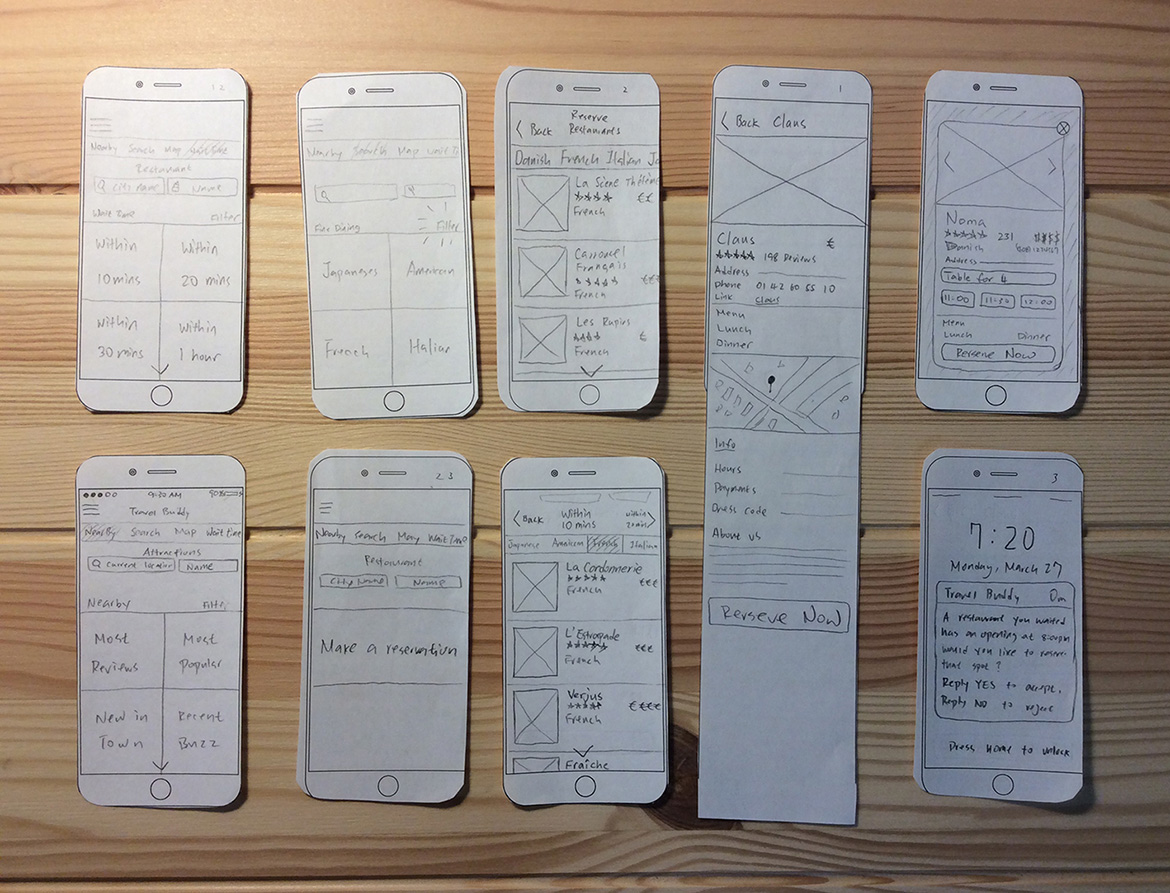 1 2
Nearby Search Map
Restaurant
City name Name
Wait Time Filter
Within Within
10 mins 20 mins
Within Within
30 mins 1 hour
Nearby Search Map Wait Ti
Fine Dining Filter
Japaneses American
French Italian
2
Reserve
Back Restaurants
Danish French Italian Ja
La Scene Thélème
€€
French
Carrousel
Français
€€€
French
Les Rupins
€
French
1
Back Claus
Claus €
198 Reviews
Address
phone 01 42 60 55 10
Link Claus
Menu
Lunch
Dinner
Info
Hours
Payments
Dress code
About us
Rerseve Now
X
Noma
231 $$$$
Danish
Address
Table for 4
11:00 11:30 12:00
Menu
Lunch Dinner
Rerseve Now
9:30 AM
Travel Buddy
NearBy Search Map Wait time
Attractions
Current location Name
Nearby
Most Most
Reviews Popular
New in Recent
Town Buzz
2 3
Nearby Search Map Wait Time
Restaurant
City Name Name
Make a reservation
Back Within within
10 mins 20 mins
Japanese American French Italian
La Cordonnerie
€€€
French
L'Estrapade
€€€
French
Verjus
€€€€
French
Fraîche
3
7:20
Monday, March 27
Travel Buddy 0m
A restaurant you waited
has an opening at 8:00pm
would you like to reserve
that spot ?
Reply YES to accept.
Reply NO to reject
Press Home to unlock